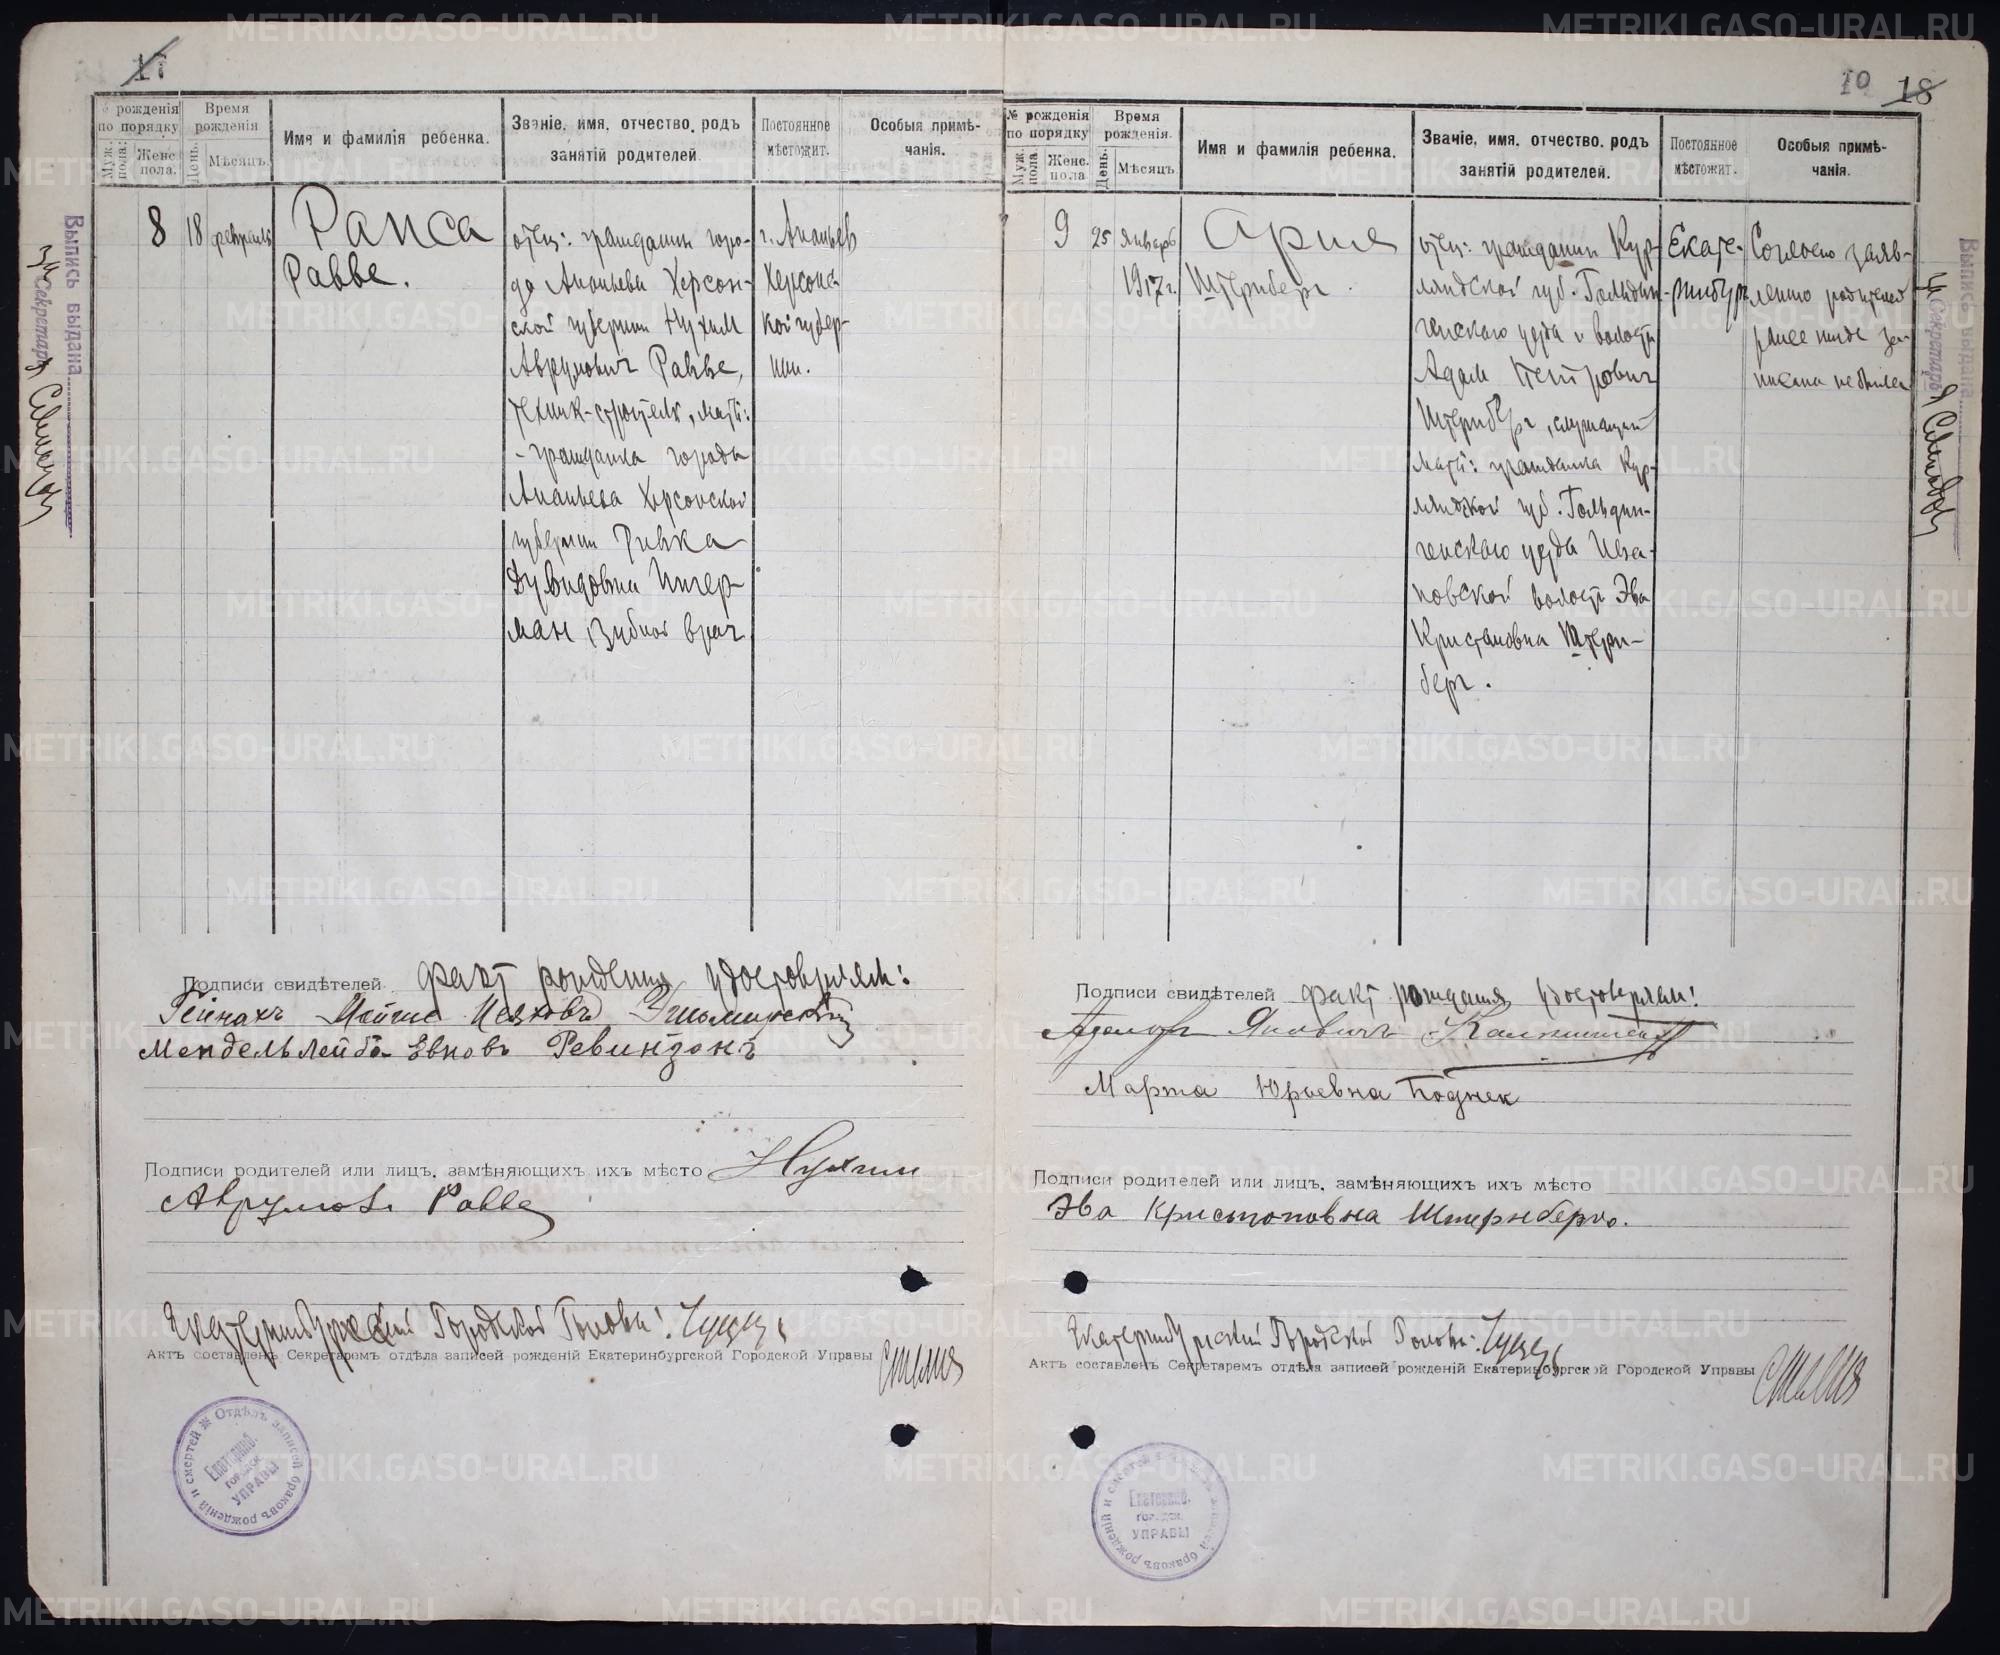 17
№ рожденія
по порядку
Муж. пола.
Женс. пола.
Время
рожденія
День.
Мѣсяцъ.
Имя и фамилія ребенка.
Званіе, имя, отчество, родъ
занятій родителей.
Постоянное
мѣстожит.
Особыя примѣ-
чанія.
8 18 февраля
Раиса
Равве.
отец: гражданин горо-
да Ананьева Херсон-
ской губернии Нухим
Аврумович Равве,
техник-строитель, мать:
- гражданка города
Ананьева Херсонской
губернии Ривка
Дувидовна Ингер-
ман зубной врач
г. Ананьев
Херсонс-
кой губер-
нии.
Подписи свидѣтелей факт рождения удостоверяем:
Гейнахъ Мойше Исаковъ
Мендель Лейба Евновъ Ревинзонъ
Подписи родителей или лицъ, замѣняющихъ ихъ мѣсто Нухим
Аврумовъ Равве
Екатеринбургский Городской Голова:
Актъ составленъ Секретаремъ отдѣла записей рожденій Екатеринбургской Городской Управы
Отдѣлъ записей браковъ рожденій и смертей
Екатеринб.
городск.
УПРАВЫ
Выпись выдана
Секретарь
10 18
№ рожденія
по порядку
Муж. пола.
Женс. пола
Время
рожденія.
День.
Мѣсяцъ
Имя и фамилія ребенка.
Званіе, имя, отчество, родъ
занятій родителей.
Постоянное
мѣстожит.
Особыя примѣ-
чанія.
9 25 январь
1917 г.
Ария
Штернберг.
отец: гражданин Кур-
ляндской губ. Гольдин-
генскаго уезда и волости
Адам Петрович
Штернберг, служащий
мать: гражданка Кур-
ляндской губ. Гольдин-
генскаго уезда Ива-
новской волости Эва
Кристаповна Штерн-
берг.
Екате-
ринбург
Согласно заяв-
лению родителей
ранее нигде за-
писана не была
Подписи свидѣтелей факт рождения удостоверяем:
Адольф Яновичъ
Марта Юрьевна Поднек
Подписи родителей или лицъ, замѣняющихъ ихъ мѣсто
Эва Кристоповна Штернбергъ.
Екатеринбургский Городской Голова:
Актъ составленъ Секретаремъ отдѣла записей рожденій Екатеринбургской Городской Управы
Отдѣлъ записей браковъ рожденій и смертей
Екатеринб.
городск.
УПРАВЫ
Выпись выдана
Секретарь
METRIKI.GASO-URAL.RU